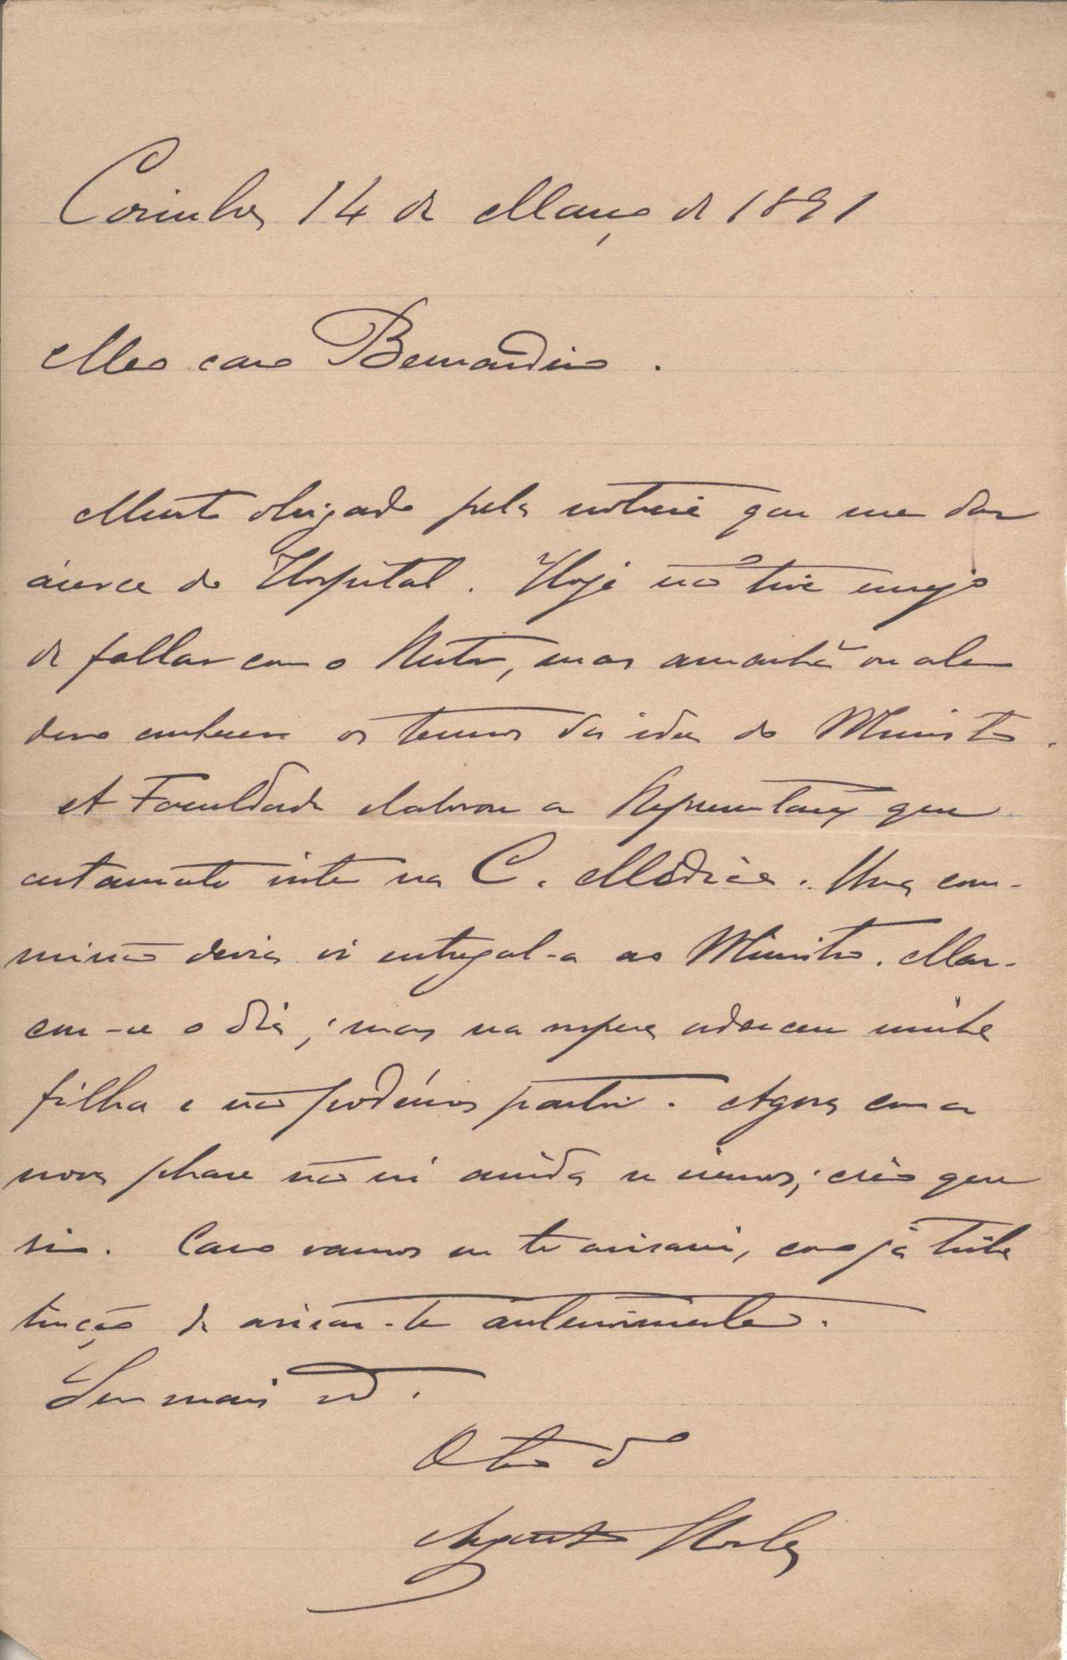 Coimbra 14 de Março de 1891
Meo caro Bernardino.
Muito obrigado pela noticia que me das
ácerca do Hospital. Hoje não tive ensejo
de fallar com o Reitor, mas amanhã ou alem
devo conhecer os termos da idea do Ministro.
A Faculdade elaborou a Representação que
certamente viste na C. Medica. Uma com-
missão devia ir entregal-a ao Ministro. Mar-
cou-se o dia; mas na vespera adoeceu minha
filha e não podémos partir. Agora com a
nova phase não sei ainda se iremos; creio que
sim. Caso vamos eu te avisarei, como já tinha
tenção de avisar-te anteriormente.
Sem mais
O teu
Augusto Rocha